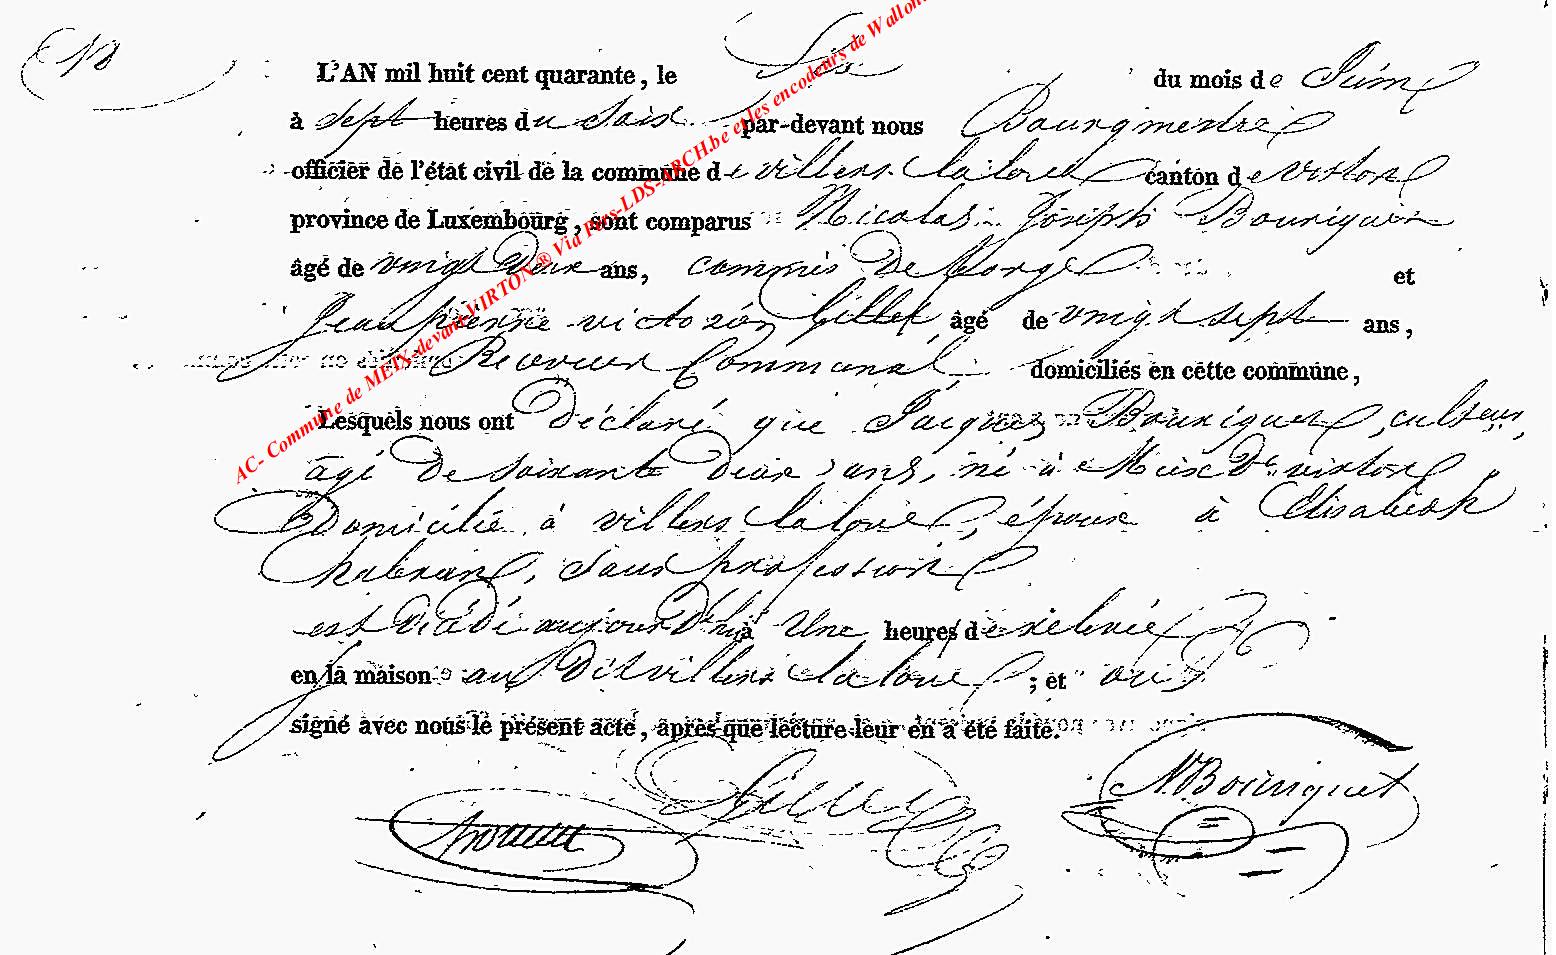 L'AN mil huit cent quarante, le Six du mois de Juin
à sept heures du soir par-devant nous Bourgmestre
officier de l'état civil de la commune de villers la loue canton de virton
province de Luxembourg, sont comparus Nicolas Joseph Bouriquet
âgé de vingt deux ans, commis De forge et
Jean pierre victor Gillet, âgé de vingt sept ans,
Receveur Communal domiciliés en cette commune,
Lesquels nous ont Déclaré que Jacques Bouriquet, culteur,
agé De soixante Deux ans, né à Meix Dt virton
Domicilié à villers la loue, époux à Elisabeth
habran, sans profession
est Décédé aujourD'hui à Une heures de relevée
en la maison au Dit villers la loue; et ont
signé avec nous le présent acte, après que lecture leur en a été faite.
N. Bouriquet
AC- Commune de MEIX-devant-VIRTON ® Via Pars-LDS-ARCH.be et les encodeurs de Wallon